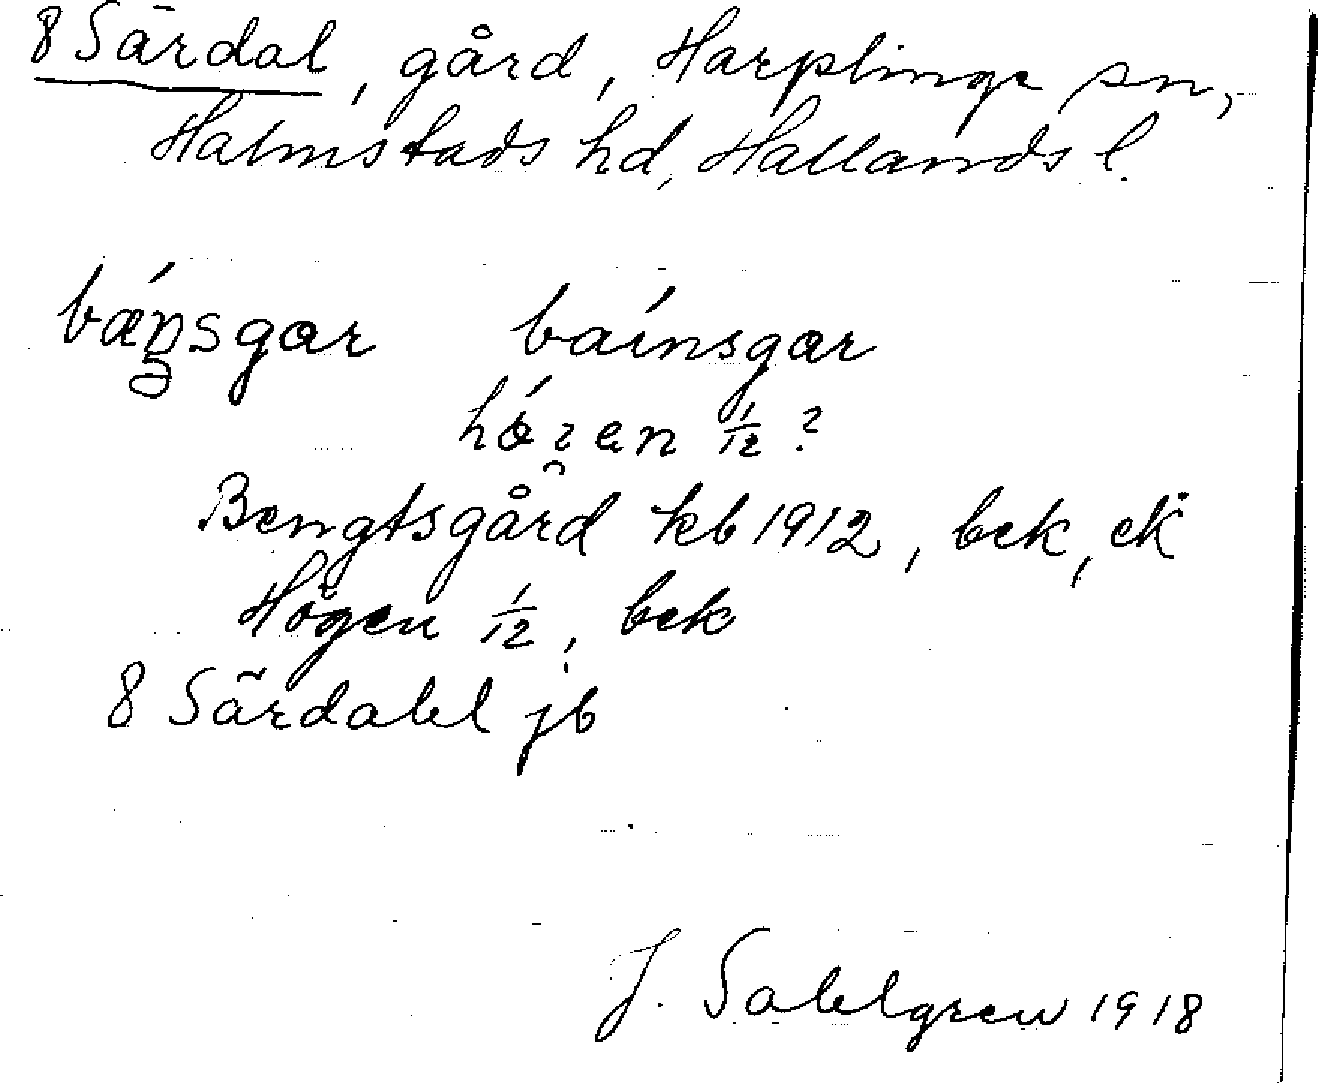 8 Särdal, gård, Harplinge sn,
Halmstads hd, Hallands l.
bǽnsgar baínsgar
½?
Bengtsgård kb 1912, bek, ek
Högen ½, bek
8 Särdahl jb
J. Sahlgren 1918